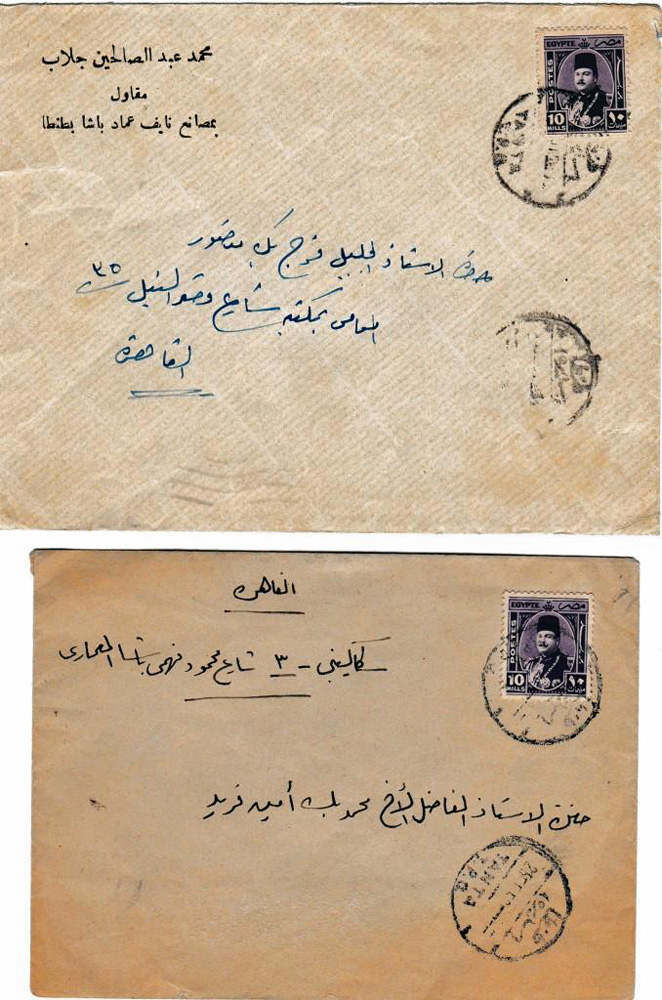 محمد عبد الصالحين جلاب
مقاول
بمصانع نايف عماد باشا بطنطا
EGYPTE مصر
POSTES
10 ١٠
MILLS مليمات
TANTA
طنطا
حضرة الاستاذ الجليل فرج بك منصور
المحامى بمكتبه شارع قصر النيل ٣٥
القاهرة
طنطا
القاهرة
EGYPTE مصر
POSTES
10 ١٠
MILLS مليمات
٣ شارع محمود فهمى باشا المعمارى
حضرة الاستاذ الفاضل الأخ محمد بك أمين فريد
TANTA
طنطا